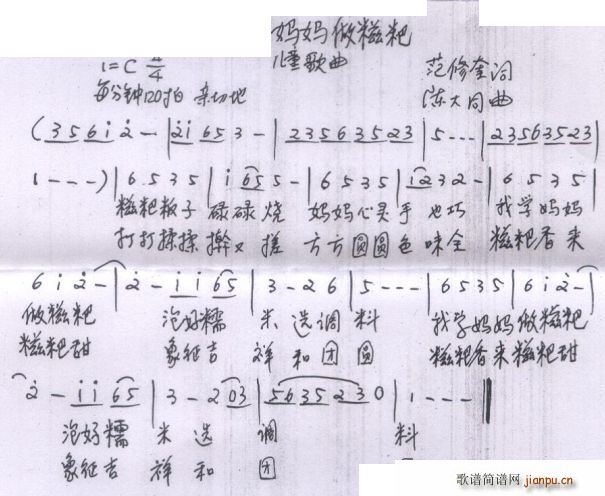 妈妈做糍粑
儿童歌曲
1=C 4/4
范修奎词
每分钟120拍 亲切地
陈大同曲
(3 5 6 i 2 - | 2 i 6 5 3 - | 2 3 5 6 3 5 2 3 | 5 - - - | 2 3 5 6 3 5 2 3 |
1 - - -) | 6 5 3 5 | i 6 5 5 - | 6 5 3 5 | i 2 3 2 - | 6 5 3 5 |
糍粑粄子 碌碌烧 妈妈心灵手也巧 我学妈妈
打打揉揉 擀又搓 方方圆圆色味全 糍粑香来
6 i 2 - | 2 - i i 6 5 | 3 - 2 6 | 5 - - - | 6 5 3 5 | 6 i 2 - |
做糍粑 泡好糯米选调料 我学妈妈做糍粑
糍粑甜 象征吉祥和团圆 糍粑香来糍粑甜
2 - i i 6 5 | 3 - 2 0 3 | 5 6 3 5 2 3 0 | 1 - - - ‖
泡好糯米选调料
象征吉祥和团
歌谱简谱网
jianpu.cn